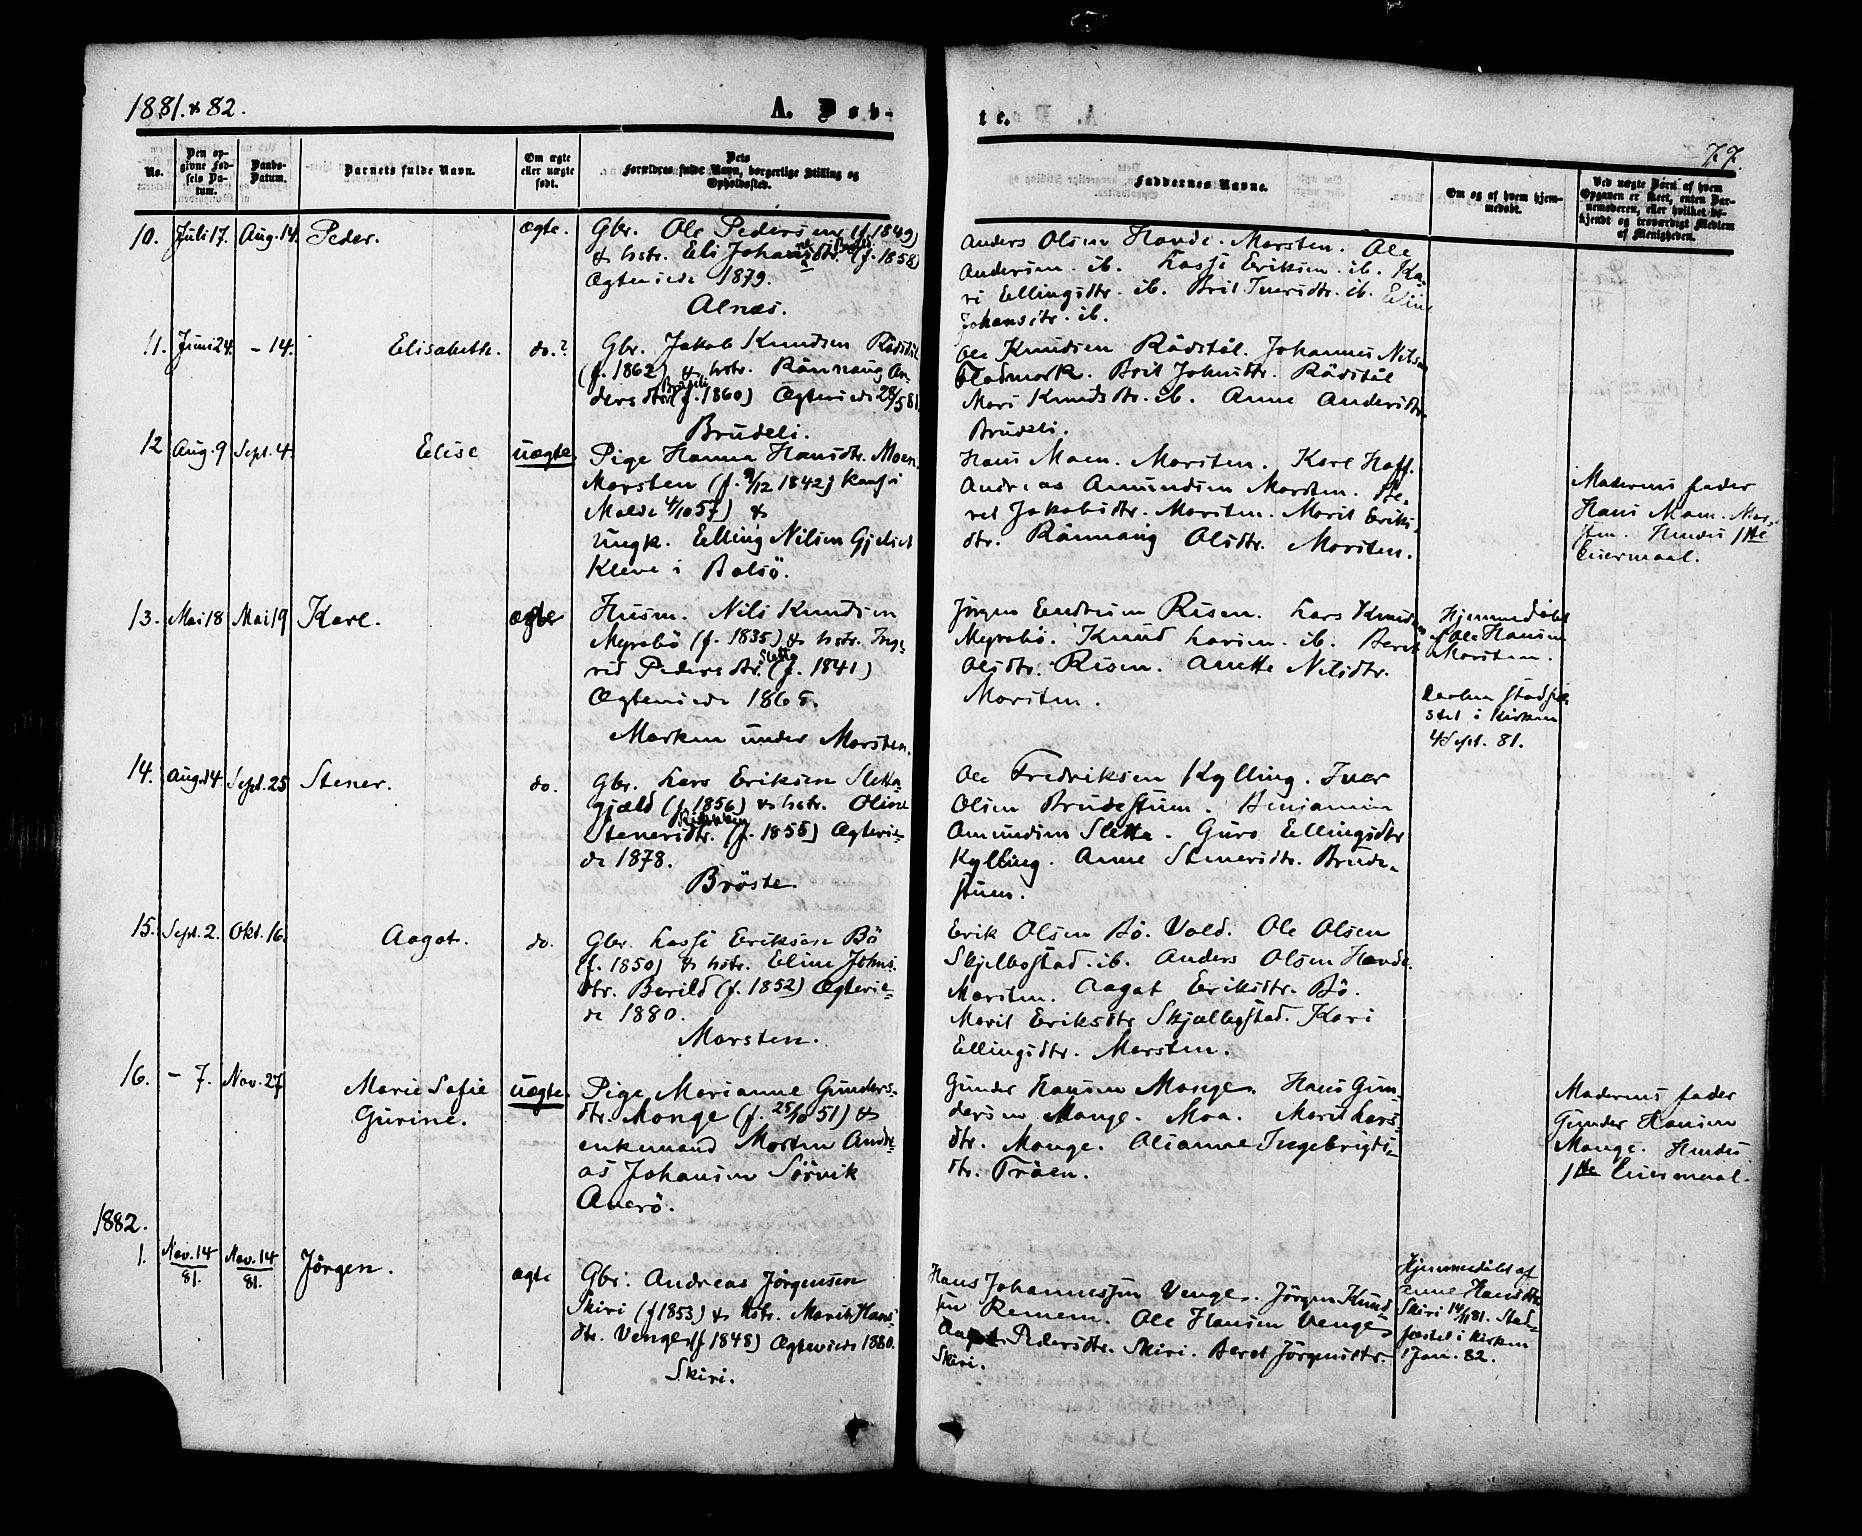 1881. & 82.
A. Døb-
te.
77.
No.
Den op-
givne Fød-
sels Da-
tum.
Daabs-
Datum.
Barnets fulde Navn.
Om ægte
eller uægte
født.
Dets
Forældres fulde Navn, borgerlige Stilling og
Opholdssted.
Faddernes Navne.
Om og af hvem hjem-
medøbt.
Ved uægte Børn af hvem
Opgaven er skeet, enten Bar-
nemoderen, eller hvilket be-
kjendt og troværdigt Medlem
af Menigheden.
10. Juli 17. Aug. 14. Peder. ægte.
Gbr. Ole Pedersen (f. 1849)
& hstr. Eli Johansdtr. (f. 1858)
Ægteviede 1879.
Alnæs.
Anders Olsen Hovde. Marsten. Ole
Andersen. ib. Lasse Eriksen. ib. Ka-
ri Ellingsdtr. ib. Brit Iversdtr. ib. Eline
Johansdtr. ib.
11. Juni 24. - 14. Elisabeth. do.?
Gbr. Jakob Knudsen Rødstøl
(f. 1862) & hstr. Rønnaug An-
dersdtr. Brudeli (f. 1860) Ægteviede 29/5 81.
Brudeli.
Ole Knudsen Rødstøl. Johannes Nilsen
Fladmark. Brit Johnsdtr. Rødstøl
Mari Knudsdtr. ib. Anne Andersdtr.
Brudeli.
12 Aug. 9 Sept. 4. Elise uægte.
Pige Hanna Hansdtr. Moen.
Marsten (f. 9/12 1842; konf. i
Molde 4/10 57) &
Ungk. Elling Nilsen Gjelset
Kleve i Bolsø.
Hans Moen. Marsten. Karl Hoff.
Andreas Amundsen Marsten. Be-
ret Jakobsdtr. Marsten. Marit Eriks-
dtr. Rønnaug Olsdtr. Marsten.
Moderens fader
Hans Moen. Mar-
sten. Hendes 1ste
Leiermaal.
13. Mai 18 Mai 19 Karl. ægte
Husm. Nils Knudsen
Myrebø (f. 1835) & hstr. Ing-
rid Pedersdtr. Sletta (f. 1841)
Ægteviede 1868.
Marken under Marsten.
Jørgen Endresen Risen. Lars Knudsen
Myrebø. Knud Larsen. ib. Berit
Olsdtr. Risen. Anette Nilsdtr.
Marsten.
Hjemmedøbt
af Ole Hansen
Marsten.
Daaben stadfæ-
stet i Kirken
4 Sept. 81.
14. Aug. 14. Sept. 25 Stener. do.
Gbr. Lars Eriksen Sletta-
gjæld (f. 1856) & hstr. Oline
Stenersdtr. (f. 1855) Ægtevie-
de 1878.
Brøste.
Ole Fredriksen Kylling. Iver
Olsen Brudestuen. Benjamin
Amundsen Sletta. Guro Ellingsdtr
Kylling. Anne Stenersdtr. Brude-
stuen.
15. Sept. 2. Okt. 16. Aagot. do.
Gbr. Lasse Eriksen Bø
(f. 1850) & hstr. Eline Johns-
dtr. Berild (f. 1852) Ægtevie-
de 1880.
Marsten.
Erik Olsen Bø. Vold. Ole Olsen
Skjelbostad. ib. Anders Olsen Hovde.
Marsten. Aagot Eriksdtr. Bø.
Marit Eriksdtr Skjælbostad. Kari
Ellingsdtr. Marsten.
16. - 7. Nov. 27 Marie Sofie
Gurine. uægte.
Pige Marianne Gunders-
dtr. Monge (f. 25/10 51) &
enkemand Morten Andre-
as Johansen Sørvik
Averø.
Gunder Hansen Monge. Hans Gun-
dersen Monge. Moa. Marit Lars-
dtr. Monge. Olianne Ingebrigts-
dtr. Trøen.
Moderens fader
Gunder Hansen
Monge. Hendes
1ste Leiermaal.
1882.
1. Nov. 14/81. Nov. 14/81. Jörgen. ægte
Gbr. Andreas Jörgensen
Skiri (f 1853) & hstr. Marit Hans-
dtr. Venge (f 1848) Ægteviede 1880.
Skiri.
Hans Johannessen Venge. Jörgen Knud-
sen Remem. Ole Hansen Venge.
Aagot Pedersdtr. Skiri. Beret Jörgensdtr.
Skiri.
Hjemmedøbt af
Anne Hansdtr.
Skiri 14/11 81. Stad-
fæstet i Kirken
1 Jan. 82.